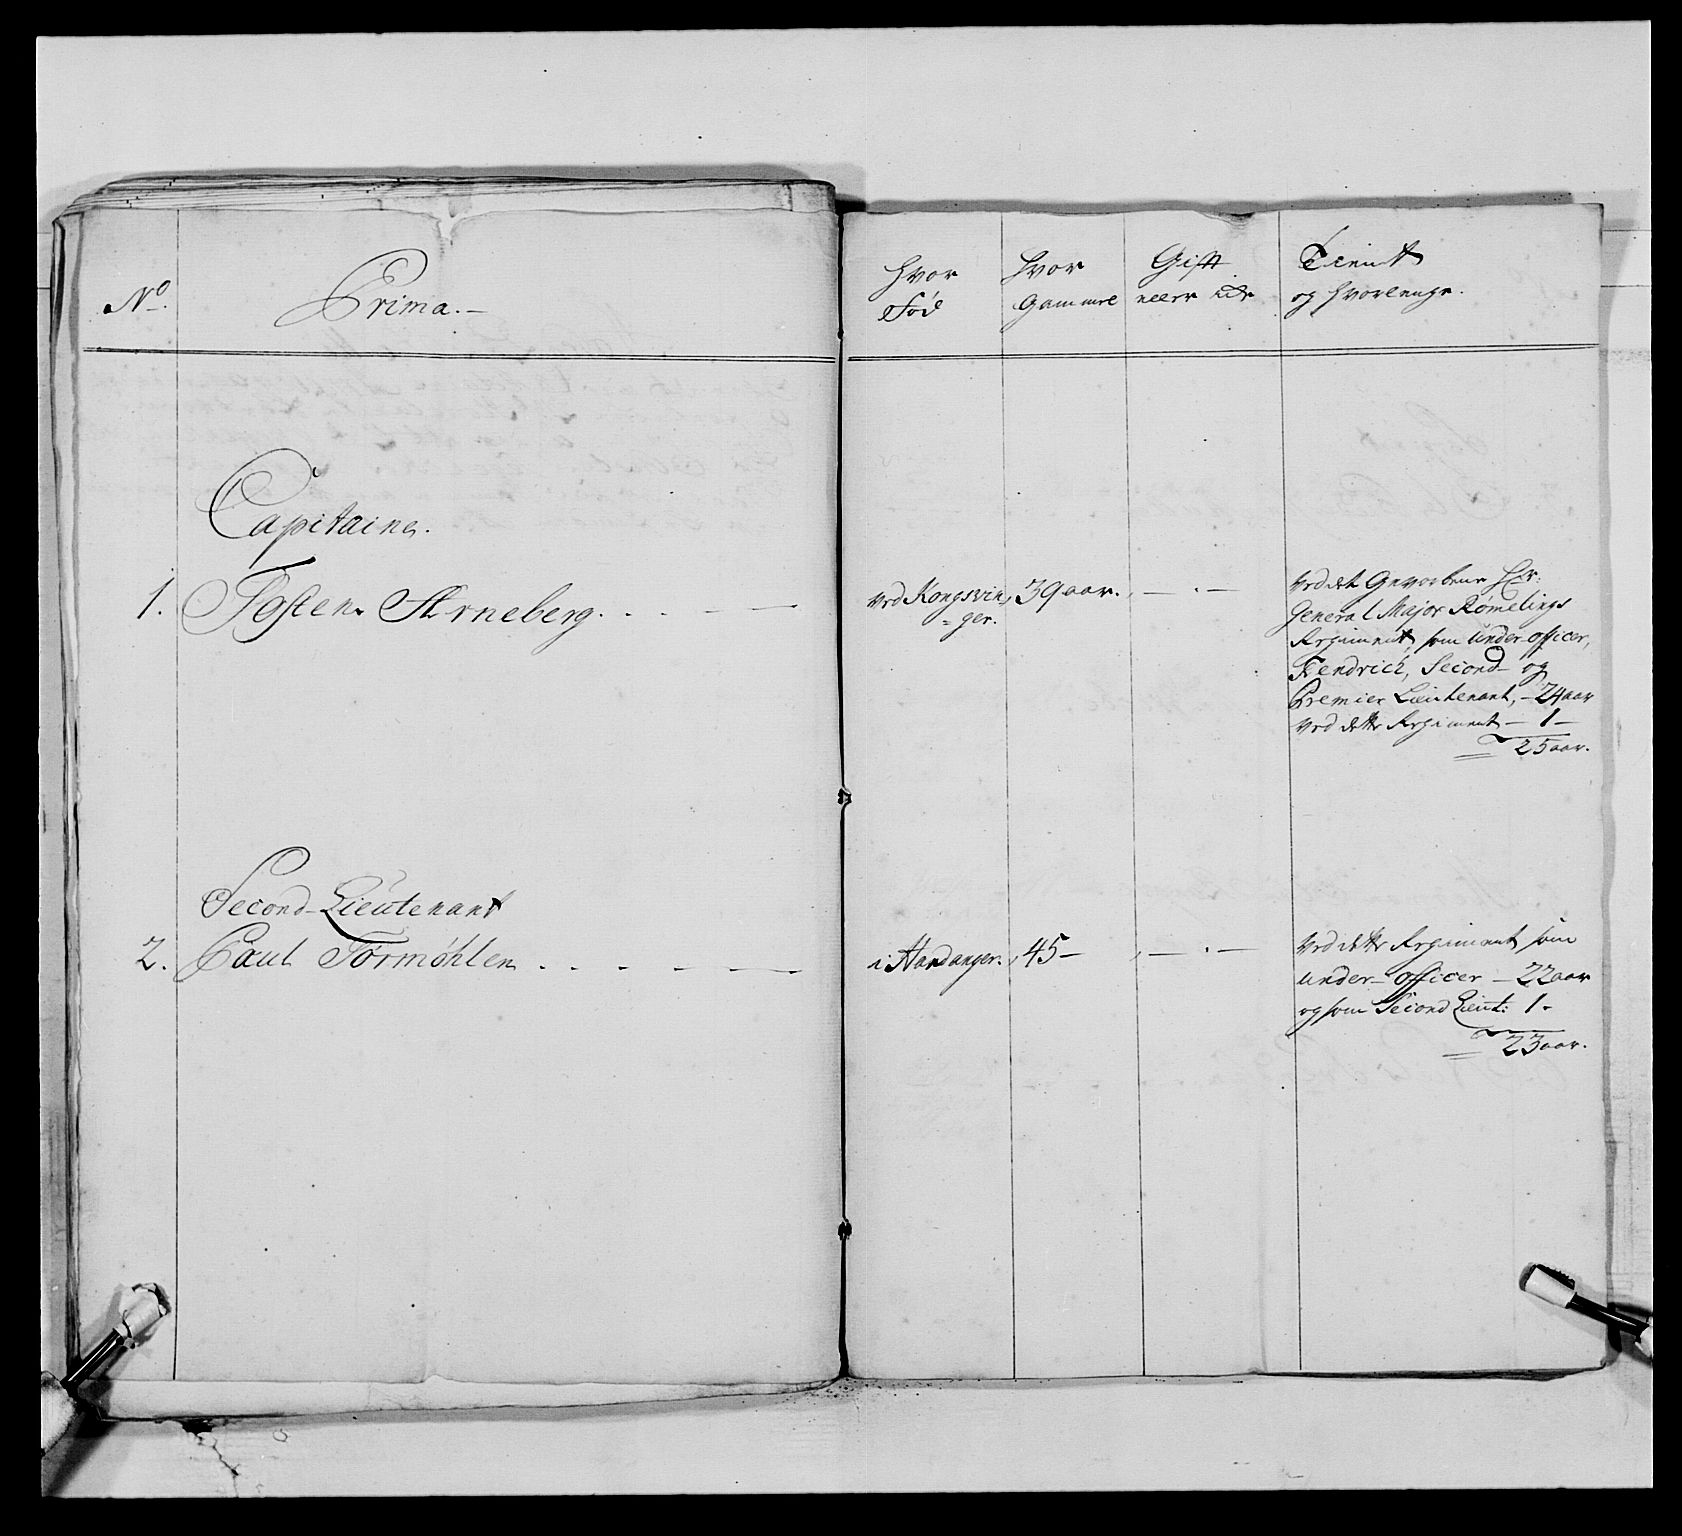 No.
Prima.
Hvor
Fød
Hvor
Gammel
Gift
eller ede
Tient
og hvorlenge.
Capitaine.
1. Tosten Arneberg. . . - - —
ved Kongsvin
=ger.
39 aar.
Ved det Gevorbene Hr:
General Major Rømelings
Regiment, som under-officer,
Fendrich, Second- og
Premier Lieutenant, - 24 aar
Ved dette Regiment - 1 -
25 aar.
Second-Lieutenant
2. Paul Tormøhlen . . . - - —
i Hardanger.
45 -
Ved dette Regiment som
under-officer - 22 aar
og som Second Lieut: 1 -
23 aar.